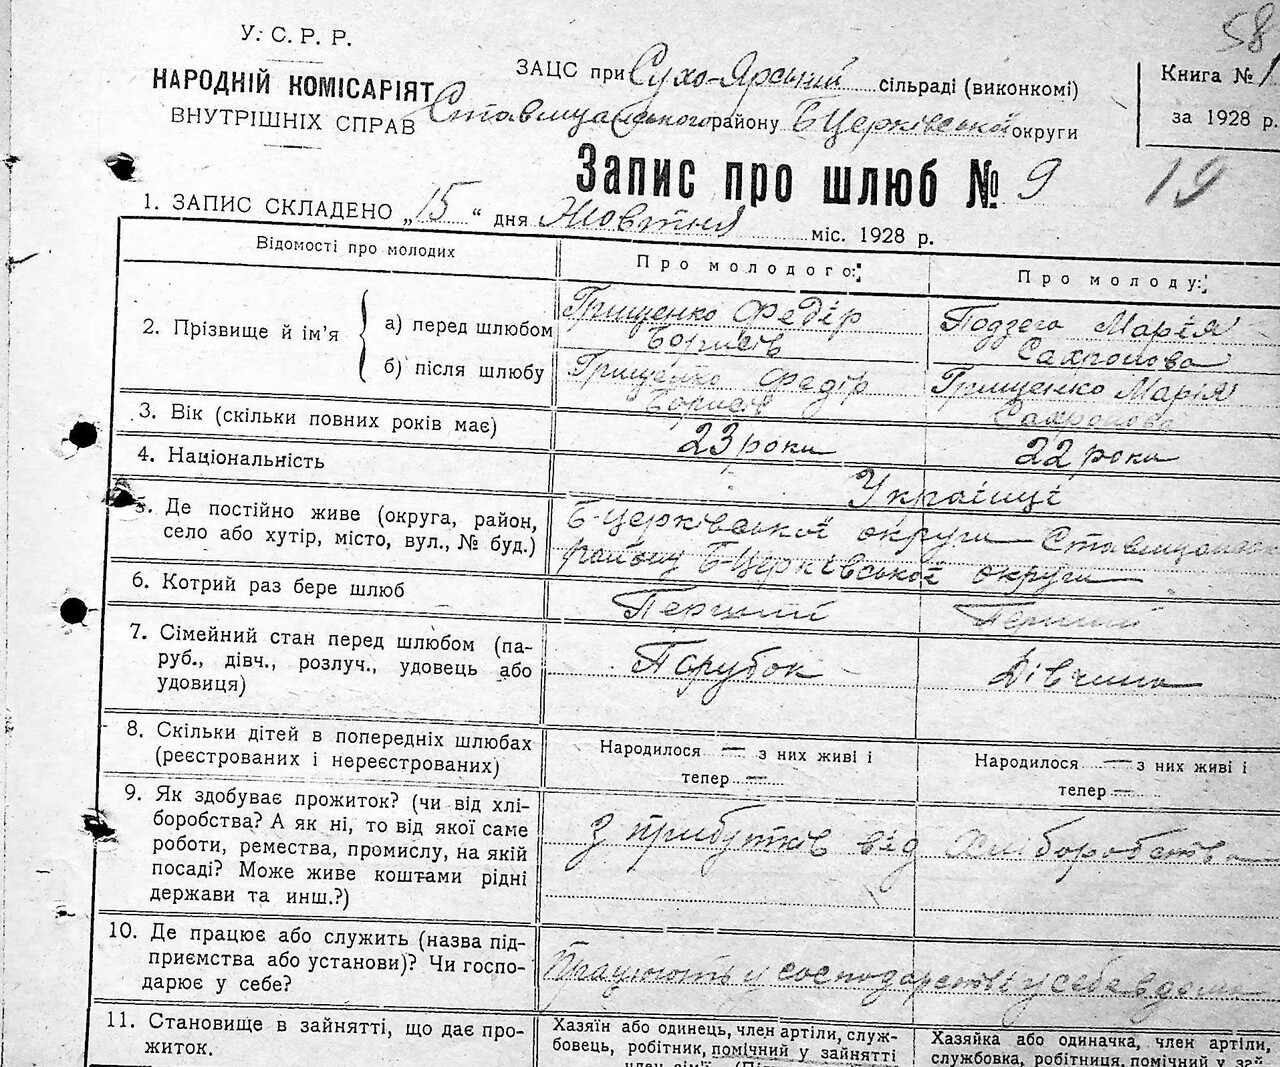 58
У. С. Р. Р.
НАРОДНІЙ КОМІСАРІЯТ
ВНУТРІШНІХ СПРАВ
ЗАЦС при Сухо-Ярський сільраді (виконкомі)
Ставищанського району Б Церківської округи
Книга № 1
за 1928 р.
Запис про шлюб № 9
19
1. ЗАПИС СКЛАДЕНО „15" дня Жовтня міс. 1928 р.
Відомості про молодих
Про молодого:
Про молоду:
2. Прізвище й ім'я
а) перед шлюбом
Грищенко Федір
Борисів
Подзега Марія
Сахронова
б) після шлюбу
Грищенко Федір
Борисів
Грищенко Марія
Сахронова
3. Вік (скільки повних років має)
23 роки
22 роки
4. Національність
Українці
5. Де постійно живе (округа, район,
село або хутір, місто, вул., № буд.)
Б-Церківської округи
району Б-Церківської округи
6. Котрий раз бере шлюб
Перший
Перший
7. Сімейний стан перед шлюбом (па-
руб., дівч., розлуч., удовець або
удовиця)
Парубок
Дівчина
8. Скільки дітей в попередніх шлюбах
(реєстрованих і нереєстрованих)
Народилося — з них живі і
тепер —
Народилося — з них живі і
тепер —
9. Як здобуває прожиток? (чи від хлі-
боробства? А як ні, то від якої саме
роботи, ремества, промислу, на якій
посаді? Може живе коштами рідні
держави та инш.?)
З прибутків від Хліборобства
10. Де працює або служить (назва під-
приємства або установи)? Чи госпо-
дарює у себе?
Працюють у господарстві у себе вдома
11. Становище в зайнятті, що дає про-
житок.
Хазяїн або одинець, член артіли, служ-
бовець, робітник, помічний у зайнятті
Хазяйка або одиначка, член артіли,
службовка, робітниця, помічний у зай-